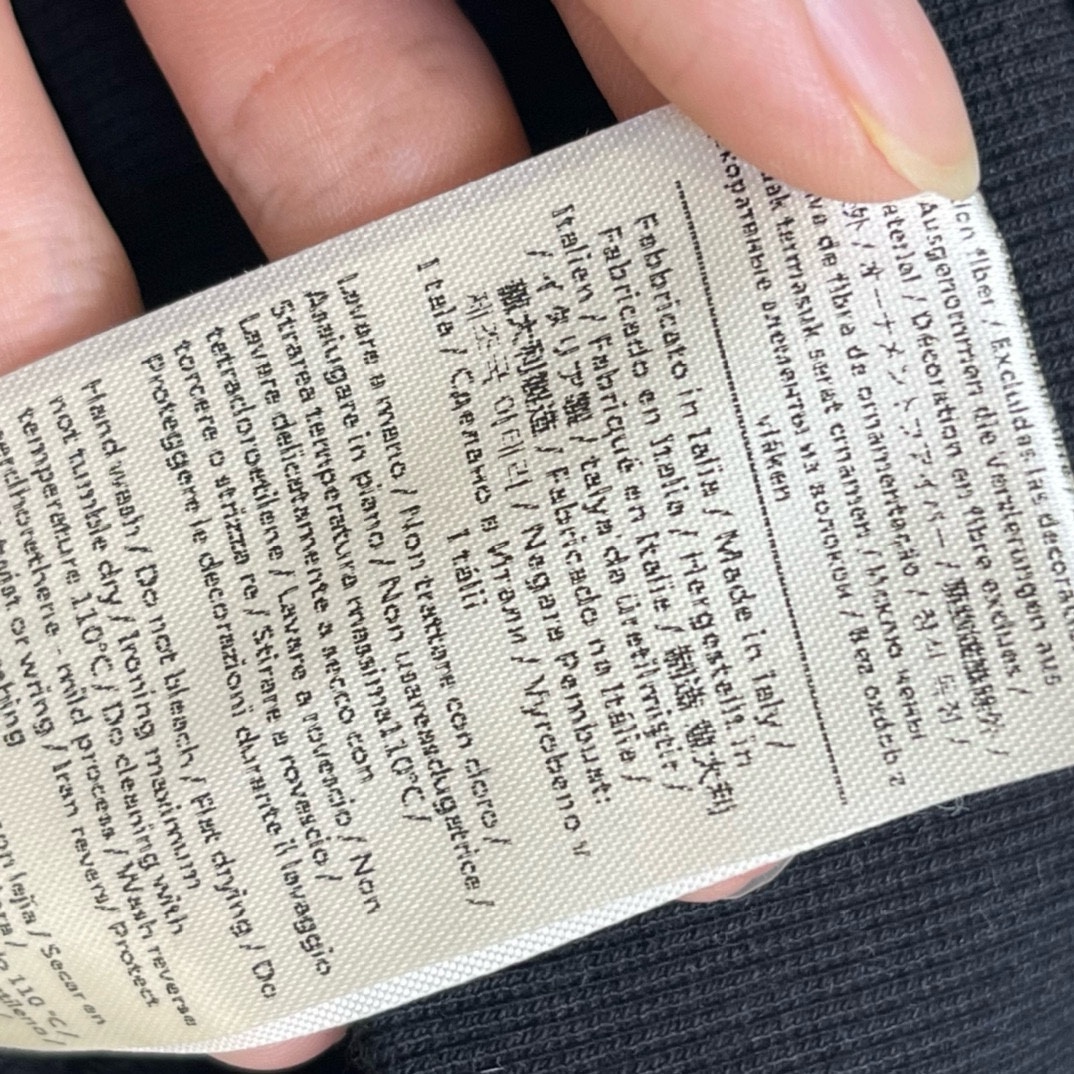 fiber / Excluidas las decorat
Ausgenommen die Verzierungen aus
aterial / Décoration en fibre exclues /
オーナメントファイバー / 장식 독점 /
va de fibra de ornamentação /
ak termasuk serat ornamen / Исключены
коративные элементы из волокон / Bez ozdob z
vláken
Fabbricato in Italia / Made in Taly /
Fabricado en Italia / Hergestellt in
Italien / Fabriqué en Italie / 制造 意大利
/ イタリア製 / talya'da üretilmiştir /
義大利製造 / Fabricado na Itália /
제조국 이태리 / Negara pembuat:
Itala / Сделано в Итали / Vyrobeno v
Itálii
Lavare a mano / Non trattare con cloro /
Asaiugare in piano / Non usareasdugatrice /
Strarea temperatura massima110°C /
Lavare delicatamente a secco con
tetracloroetilene / Lavare a rovescio / Non
torcere o strizza re / Stirare a rovescio /
Proteggere le decorazioni durante il lavaggio
Hand wash / Do not bleach / Flat drying / Do
not tumble dry / Ironing maximum
temperature 110°C / Do cleaning with
perclhorethere - mild process / Wash reverse
twist or wring / Iran revers/ Protect
on lejía / Secar en
110 °C /